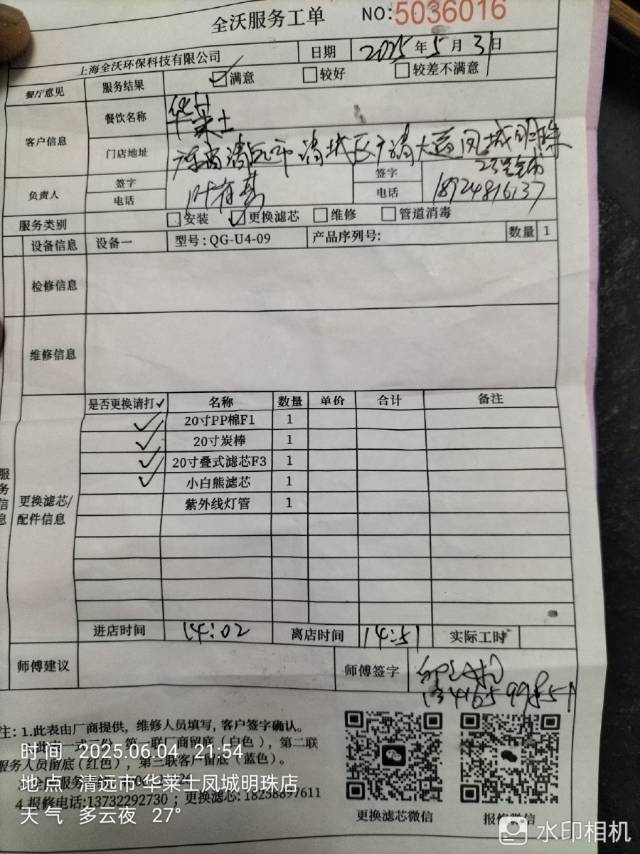 全沃服务工单 NO:5036016
上海全沃环保科技有限公司 日期 2025年5月31日
餐厅意见 服务结果 ☑满意 □较好 □较差不满意
客户信息 餐饮名称 华莱士
门店地址 清远市清城区广清大道凤城明珠
23号商铺
负责人 签字 叶 签字
电话 电话 18924816137
服务类别 □安装 ☑更换滤芯 □维修 □管道消毒
设备信息 设备一 型号: QG-U4-09 产品序列号: 数量 1
检修信息
维修信息
是否更换请打✓ 名称 数量 单价 合计 备注
✓ 20寸PP棉F1 1
✓ 20寸炭棒 1
✓ 20寸叠式滤芯F3 1
✓ 小白熊滤芯 1
紫外线灯管 1
服务信息 更换滤芯/配件信息
进店时间 14:02 离店时间 14:51 实际工时
师傅建议 师傅签字
注: 1.此表由厂商提供，维修人员填写，客户签字确认。
第一联厂商留底(白色)，第二联
服务人员留底(红色)，第三联客户留底(蓝色)。
4.报修电话:13732292730；更换滤芯:18258897611
更换滤芯微信 报修微信
时间 2025.06.04 21:54
地点 清远市·华莱士凤城明珠店
天气 多云夜 27°
水印相机